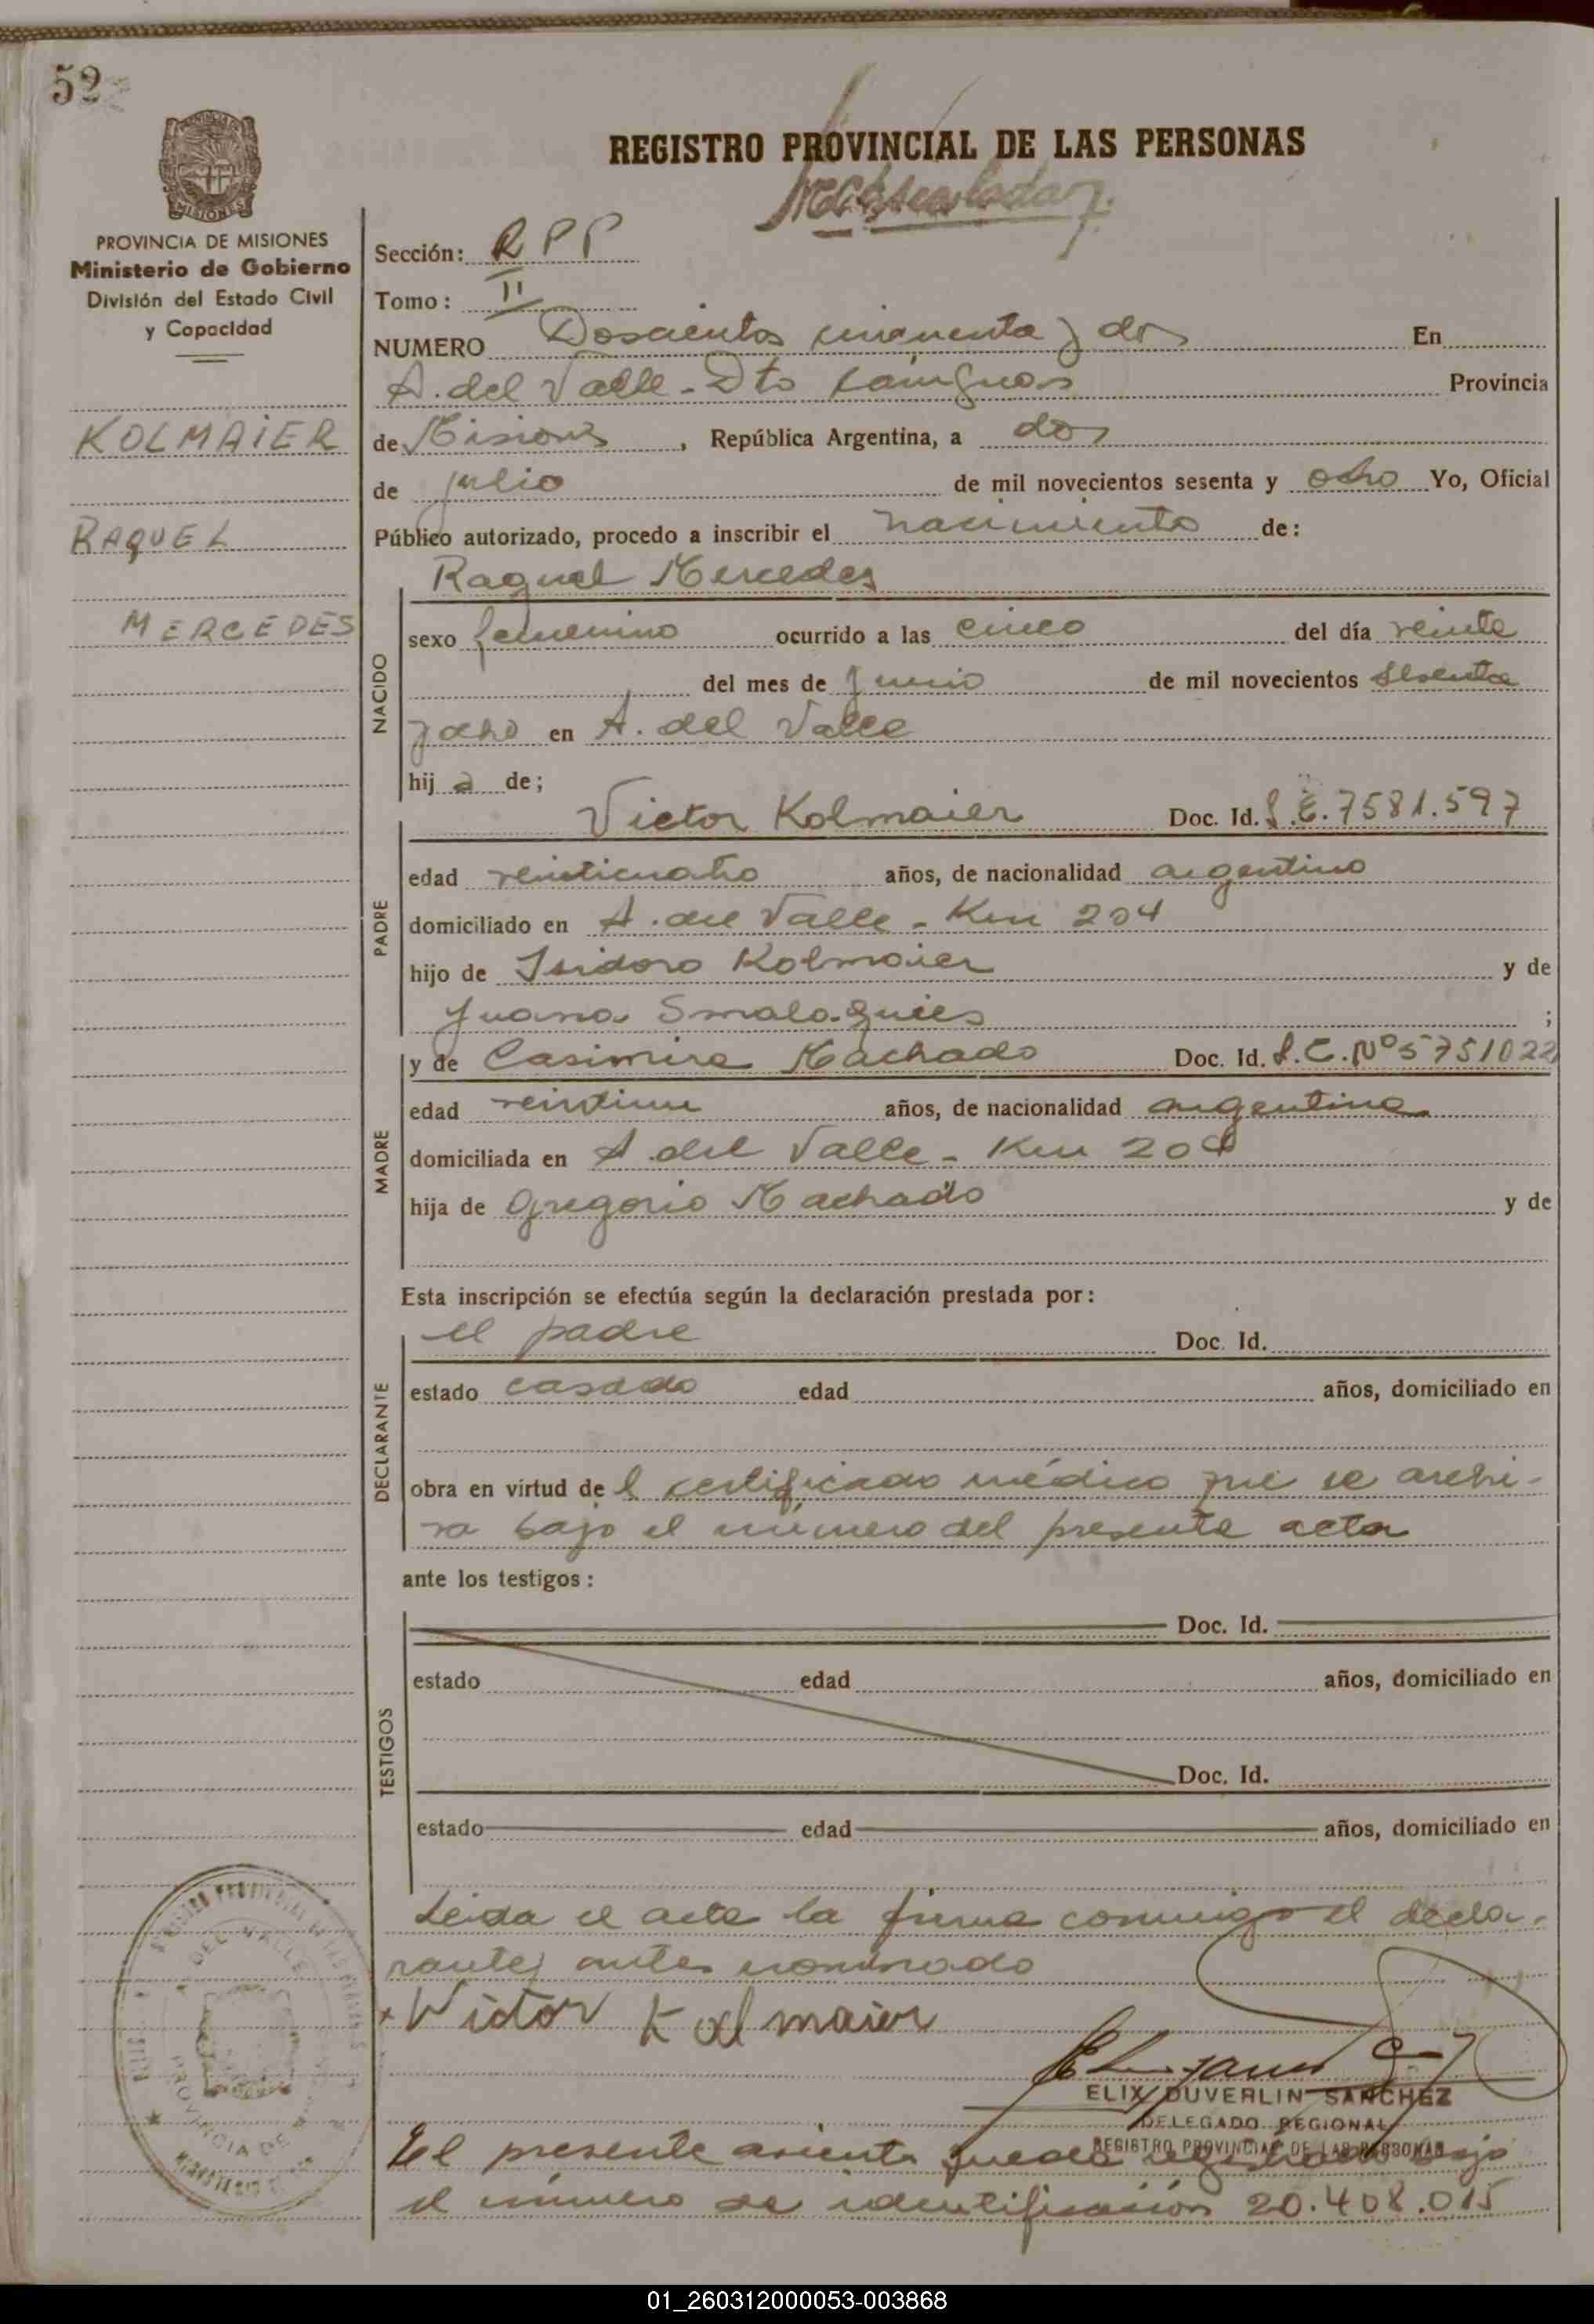 52
REGISTRO PROVINCIAL DE LAS PERSONAS
MISIONES
PROVINCIA DE MISIONES
Ministerio de Gobierno
División del Estado Civil
y Capacidad
KOLMAIER
RAQUEL
MERCEDES
Sección: R P P
Tomo: II
NUMERO Doscientos cincuenta y dos En
A. del Valle - Dto Cainguas Provincia
de Misiones, República Argentina, a dos
de julio de mil novecientos sesenta y ocho Yo, Oficial
Público autorizado, procedo a inscribir el nacimiento de:
Raquel Mercedes
NACIDO
sexo femenino ocurrido a las cinco del día veinte
del mes de Junio de mil novecientos sesenta
y ocho en A. del Valle
hij a de;
PADRE
Victor Kolmaier Doc. Id. L.E. 7581.597
edad veinticuatro años, de nacionalidad argentino
domiciliado en A. del Valle - Km 204
hijo de Isidoro Kolmaier y de
Juana ;
MADRE
y de Casimira Machado Doc. Id. L.C. Nº 5751022
edad veintiun años, de nacionalidad argentina
domiciliada en A del Valle - Km 204
hija de Gregorio Machado y de
Esta inscripción se efectúa según la declaración prestada por:
DECLARANTE
el padre Doc. Id.
estado casado edad años, domiciliado en
obra en virtud de l certificado médico que se archi-
va bajo el número del presente acta
ante los testigos:
TESTIGOS
Doc. Id.
estado edad años, domiciliado en
Doc. Id.
estado edad años, domiciliado en
Leida el acta la firma conmigo el decla-
rante, antes nominado
Victor Kolmaier
ELIX DUVERLIN SANCHEZ
DELEGADO REGIONAL
REGISTRO PROVINCIAL DE LAS PERSONAS
El presente asiento queda registrado bajo
el número de identificación 20.408.015
DEL VALLE
PROVINCIA DE
01_260312000053-003868